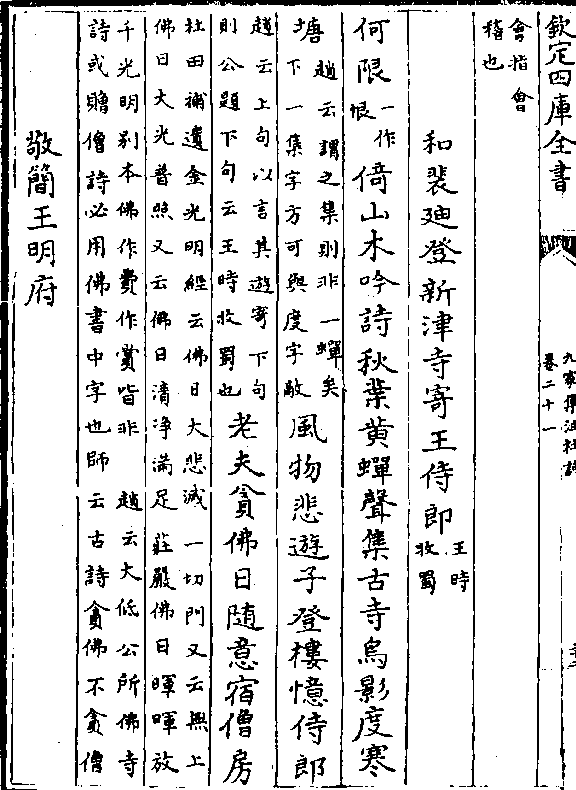 欽定四庫全書
九家集注杜詩
卷二十一
會指會
稽也
和裴廸登新津寺寄王侍郎王時
牧蜀
何限一作
恨倚山木吟詩秋葉黄蟬聲集古寺鳥影度寒
塘趙云謂之集則非一蟬矣
下一集字方可與度字敵風物悲遊子登樓憶侍郎
趙云上句以言其遊寄下句
則公題下句云王時牧蜀也老夫貪佛日隨意宿僧房
杜田補遺金光明經云佛日大悲滅一切門又云無上
佛日大光普照又云佛日清淨滿足莊嚴佛日暉暉放
千光明别本佛作費作賞皆非 趙云大低公所佛寺
詩或贈僧詩必用佛書中字也師云古詩貪佛不貪僧
敬簡王明府